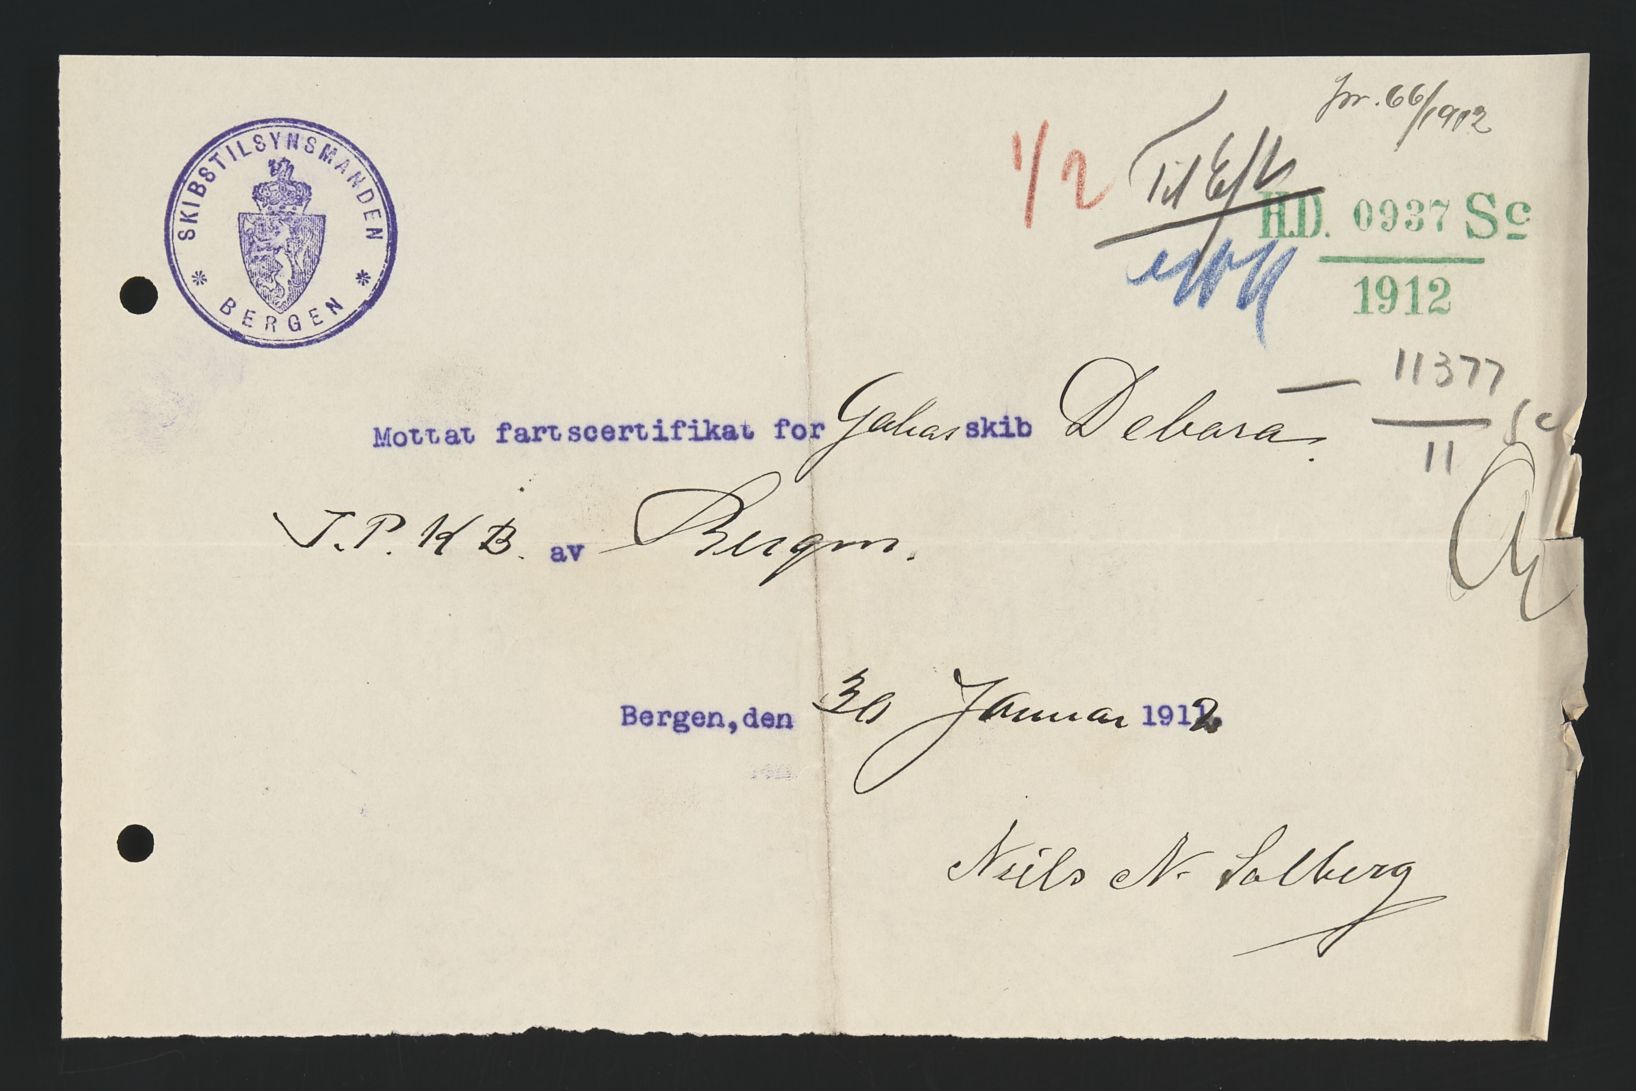 SKIBSTILSYNSMANDEN
* BERGEN *
Jnr. 66/1912
1/2
Til
H.D. 0937 Sc
1912
11377 Sc
11
Mottat fartscertifikat for Galeasskib Debara.
J.P.K.B. av Bergen.
Bergen,den 30 Januar 1912.
Niels N. Solberg